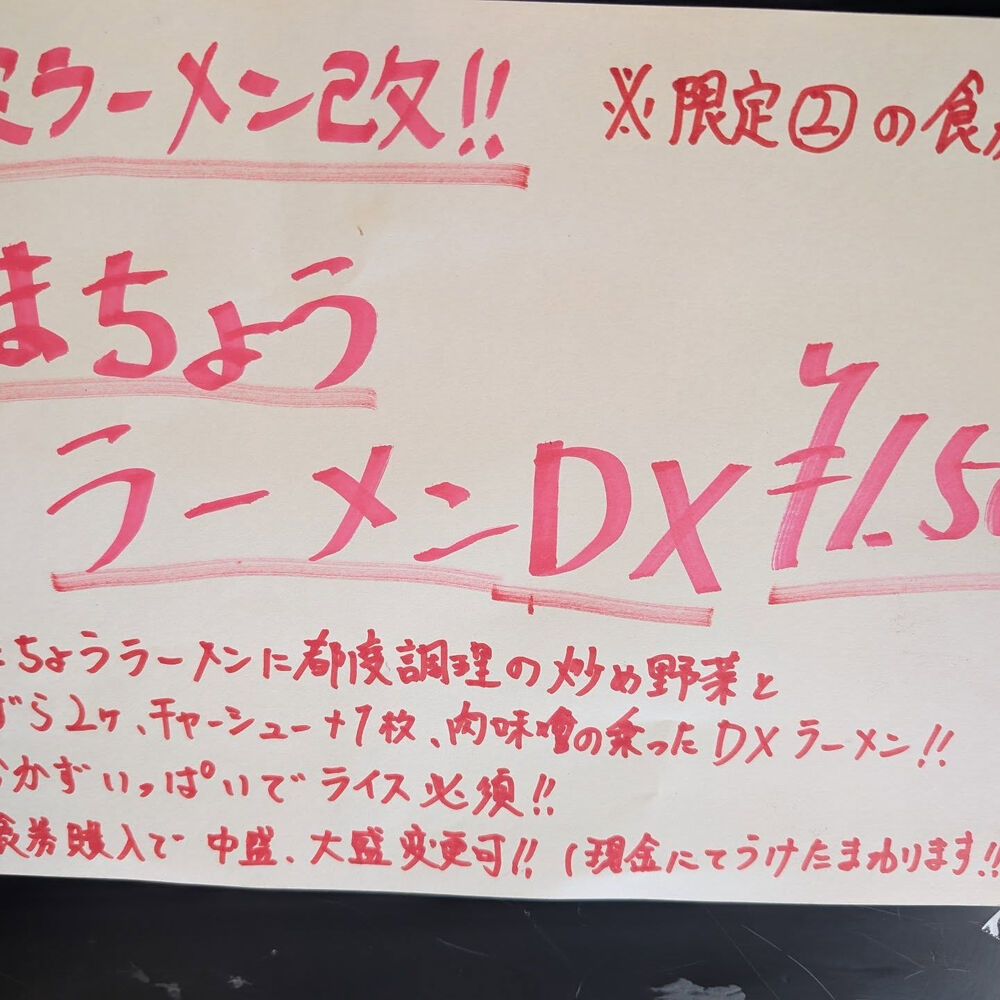 ラーメン改!!
※限定②の食
まちょう
ラーメンDX ¥1.50
ちょうラーメンに都度調理の炒め野菜と
ずら2ヶ、チャーシュー+1枚、肉味噌の乗ったDXラーメン!!
おかずいっぱいでライス必須!!
食券購入で中盛、大盛変更可!! (現金にてうけたまわります!!